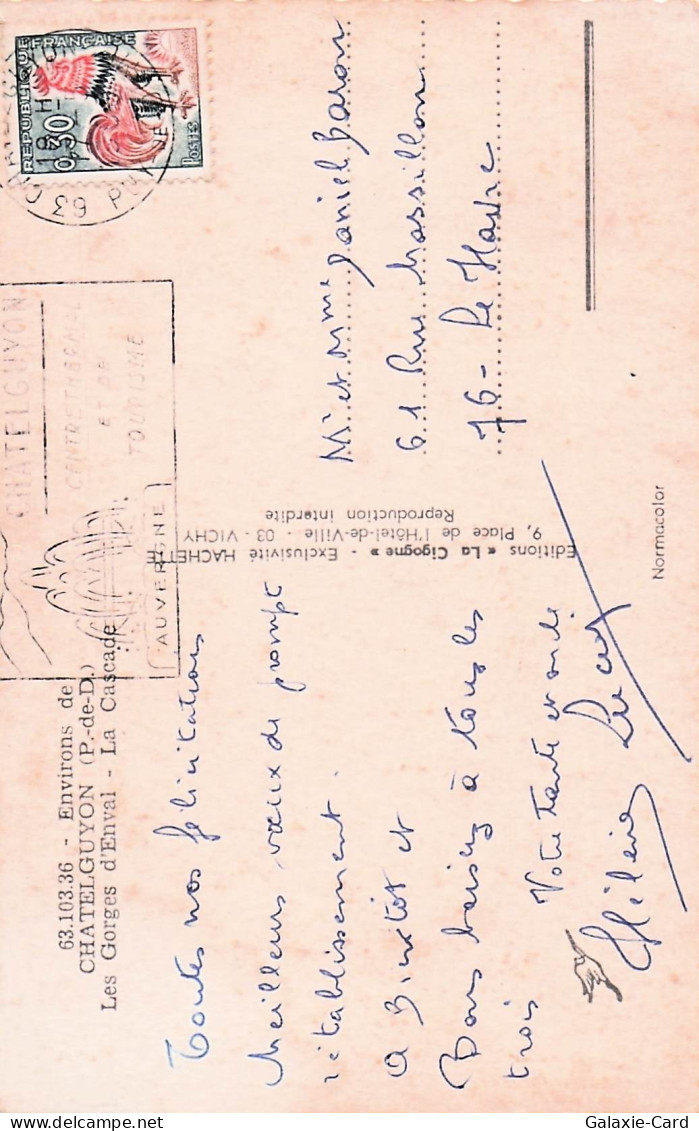 63.103.36 - Environs de
CHATELGUYON (P.-de-D.)
Les Gorges d'Enval - La Cascade
Toutes nos félicitations
Meilleurs vœux de prompt
rétablissement.
A Bientôt et
Bons baisers à tous les
trois
Votre tante et oncle
Hélène Lucas
Editions « La Cigogne » - Exclusivité HACHETTE
9, Place de l'Hôtel-de-Ville - 03 - VICHY
Reproduction interdite
REPUBLIQUE FRANÇAISE
0,30
POSTES
18 H
63
CHATELGUYON
CENTRE THERMAL
ET DE
TOURISME
AUVERGNE
Mr et Mme Daniel Baron
61 Rue Massillon
76 - Le Havre
Normacolor
Galaxie-Card